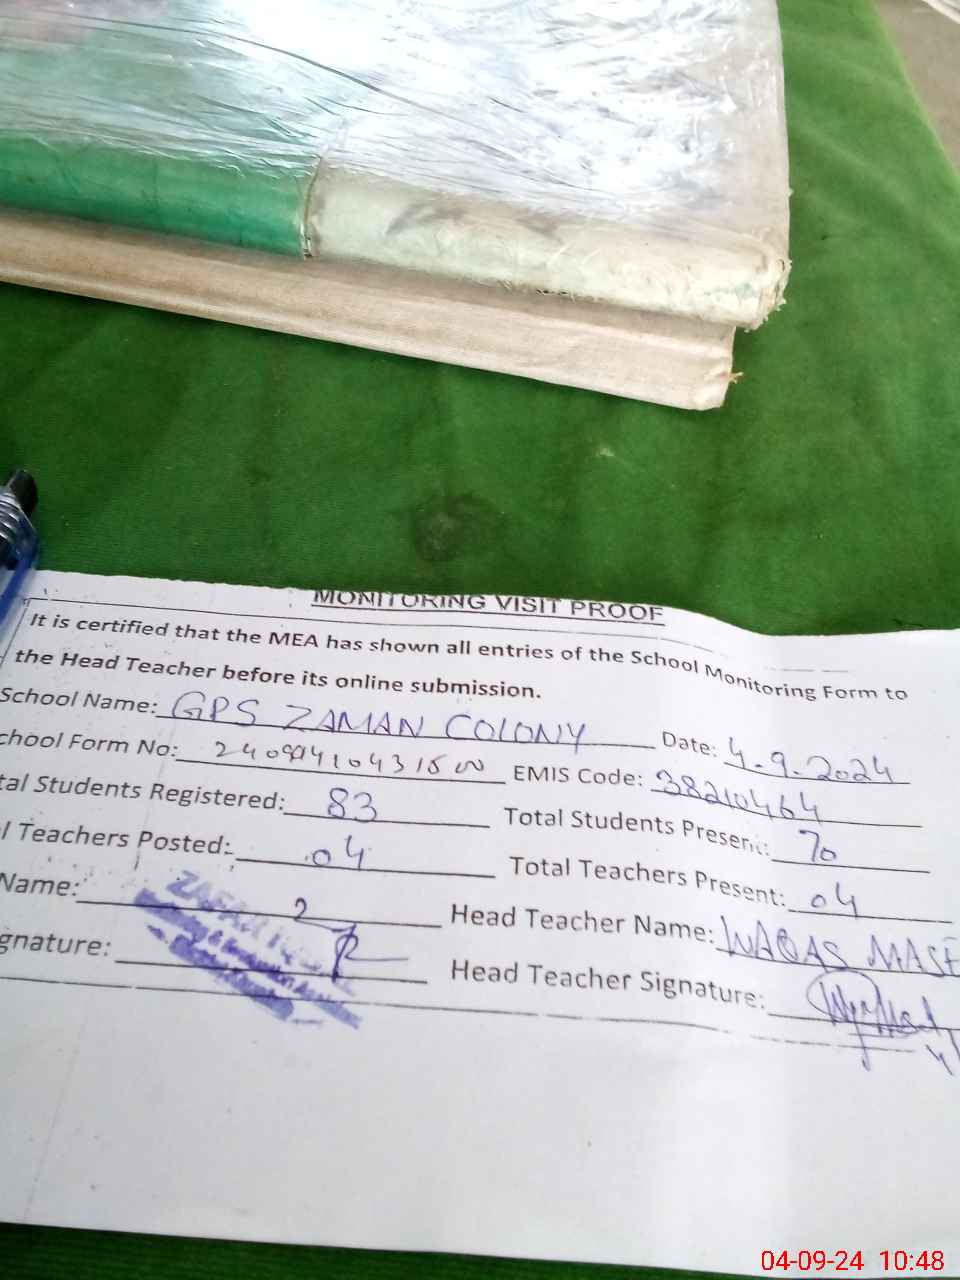 MONITORING VISIT PROOF
It is certified that the MEA has shown all entries of the School Monitoring Form to
the Head Teacher before its online submission.
School Name: GPS ZAMAN COLONY Date: 4.9.2024
chool Form No: EMIS Code: 38210464
tal Students Registered: 83 Total Students Present: 70
l Teachers Posted: 04 Total Teachers Present: 04
Name: Head Teacher Name: WAQAS MASE
gnature: Head Teacher Signature:
ZAFAR
04-09-24 10:48